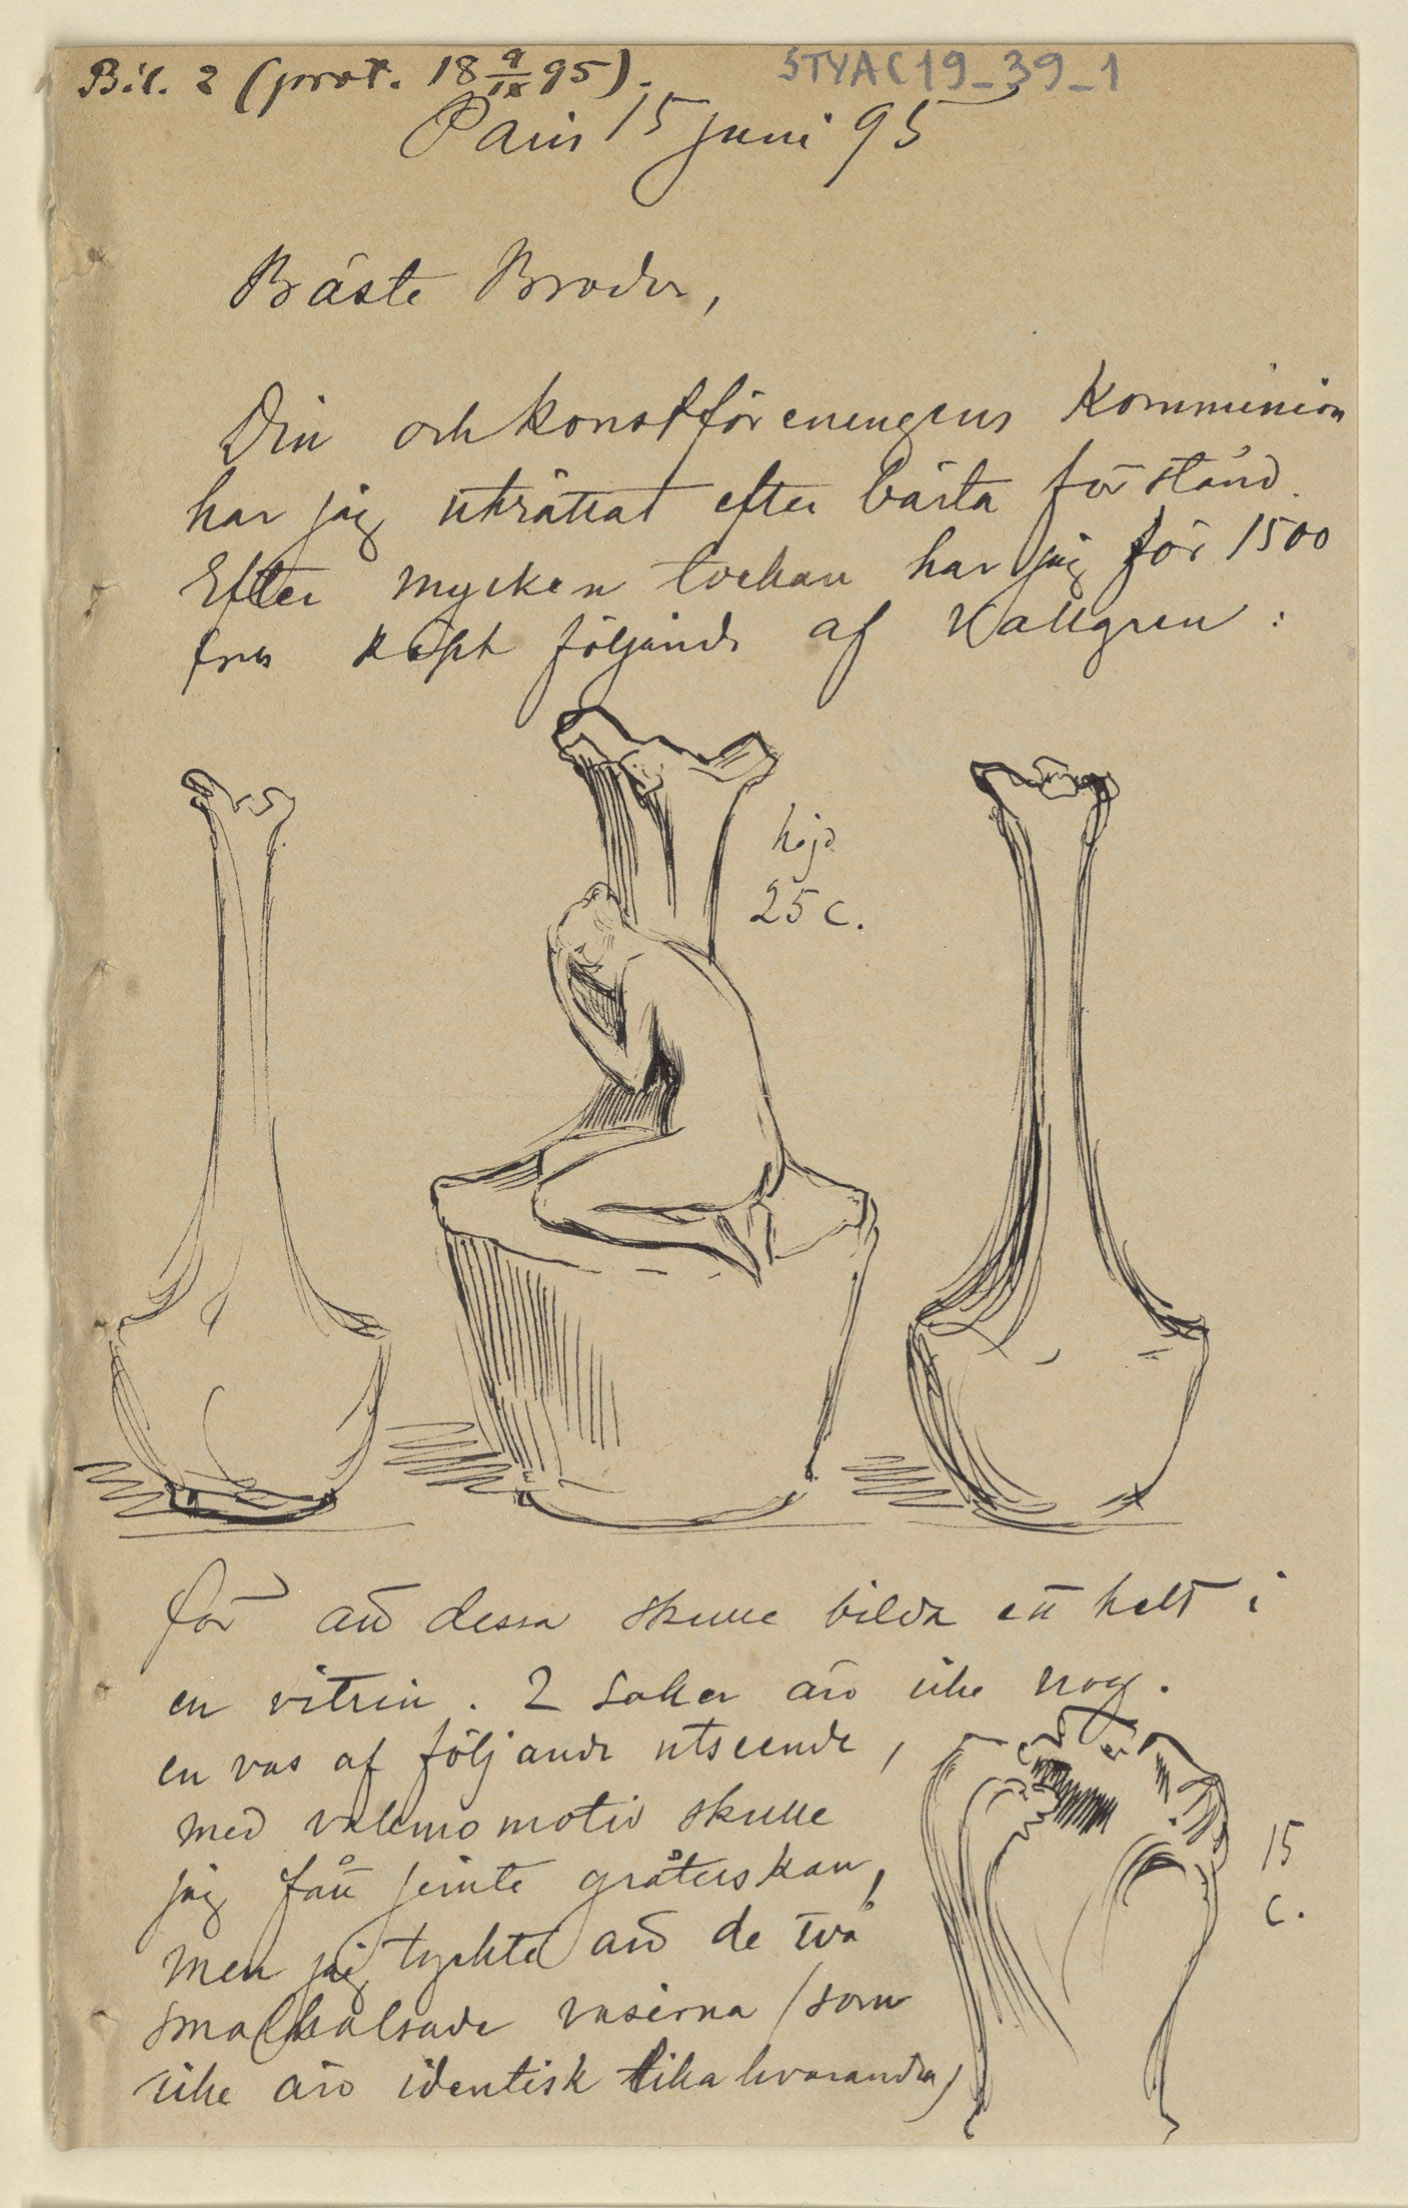 Bil. 2 (prot. 18 9/IX 95).
STYAC19_39_1
Paris 15 juni 95
Bäste Broder,
Din och konstföreningens Kommission
har jag uträttat efter bästa förstånd.
Efter mycken tvekan har jag för 1500
frcs köpt följande af Vallgren:
höjd
25 c.
för att dessa skulle bilda ett helt i
en vitrin. 2 saker äro icke nog.
en vas af följande utseende,
med valmomotiv skulle
jag fått jemte gråterskan,
men jag tyckte att de två
smalhalsade vaserna (som
icke äro identisk lika hvarandra)
15
c.